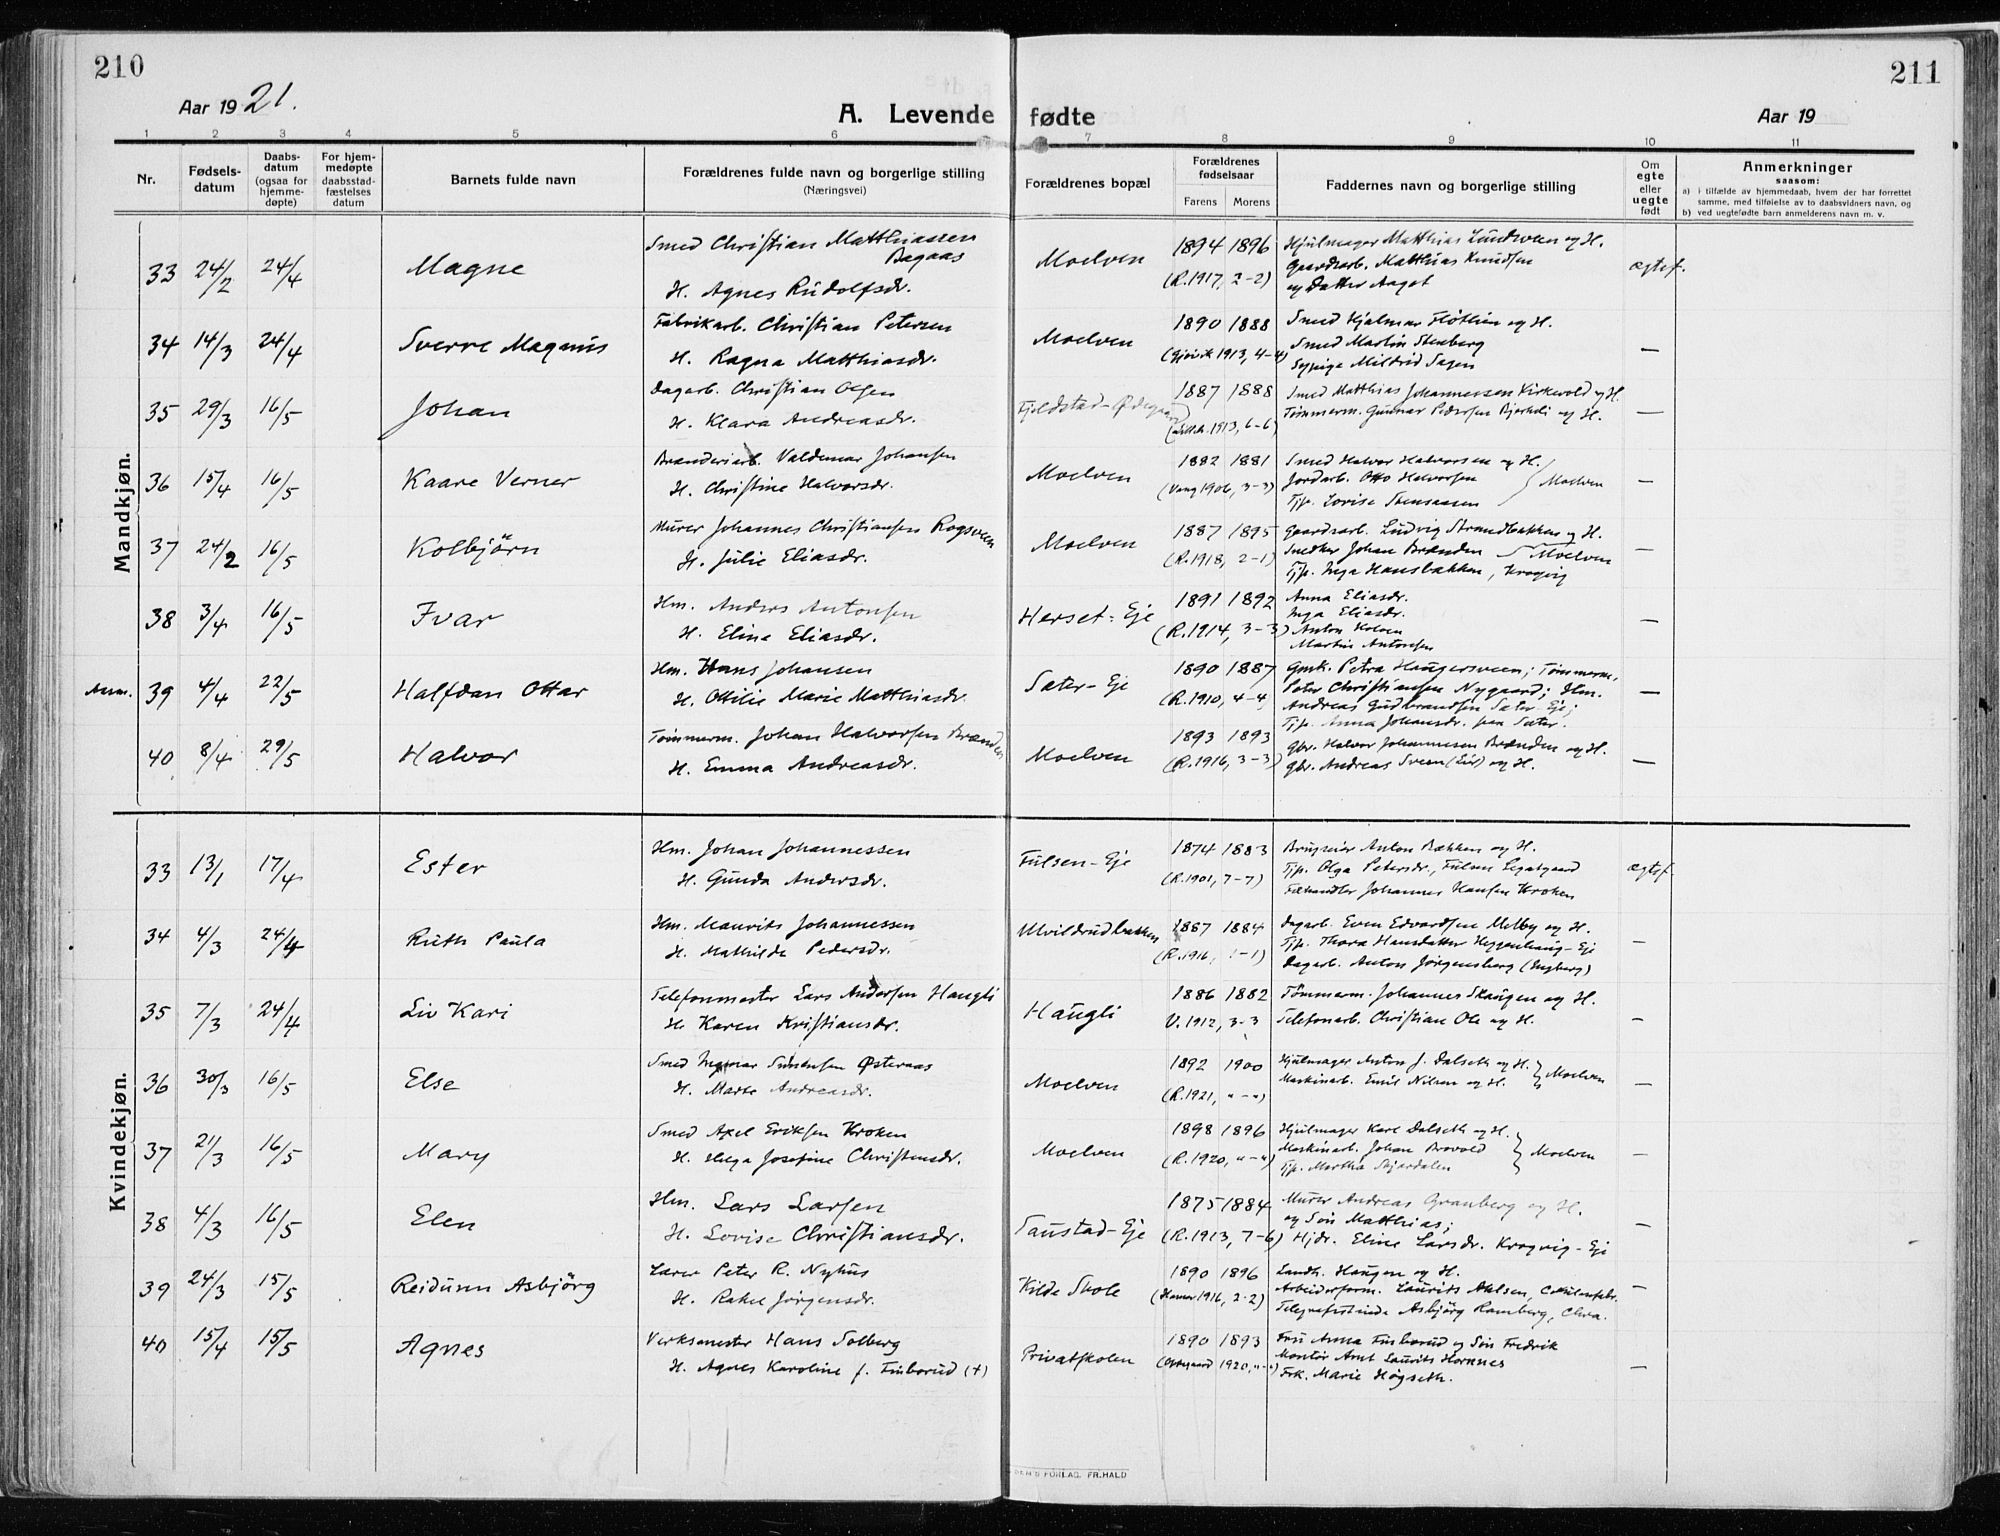 210
211
Aar 1921.
A. Levende fødte
Aar 19
1 2 3 4 5 6 7 8 9 10 11
Nr.
Fødsels-
datum
Daabs-
datum
(ogsaa for
hjemme-
døpte)
For hjem-
medøpte
daabsstad-
fæstelses
datum
Barnets fulde navn
Forældrenes fulde navn og borgerlige stilling
(Næringsvei)
Forældrenes bopæl
Forældrenes
fødselsaar
Farens Morens
Faddernes navn og borgerlige stilling
Om
egte
eller
uegte
født
Anmerkninger
saasom:
a) i tilfælde av hjemmedaab, hvem der har forrettet
samme, med tilføielse av to daabsvidners navn, og
b) ved uegtefødte barn anmelderens navn m. v.
Mandkjøn.
33 24/2 24/4 Magne
Smed Christian Matthiassen
Bagaas
H. Agnes Rudolfsdr.
Moelven
1894 1896
(R.1917, 2-2)
Hjulmager Matthias Lundsveen og H.
Gaardsarb. Matthias Knudsen
og Datter Aagot
ægtef.
34 14/3 24/4 Sverre Magnus
Fabrikarb. Christian Petersen
H. Ragna Matthiasdr.
Moelven
1890 1888
(Gjøvik 1913, 4-4)
Smed Hjalmar Fløtlien og H.
Smed Martin Stenberg
Sypige Mildrid Sagen
—
35 29/3 16/5 Johan
Dagarb. Christian Olsen
H. Klara Andreasdr.
Fjeldstad-Ødegaard
1887 1888
1913, 6-6)
Smed Matthias Johannessen Kirkevold og H.
Tømmerm. Gunnar Pedersen Bjerkeli og H.
—
36 15/4 16/5 Kaare Verner
Brænderiarb. Valdemar Johansen
H. Christine Halvorsdr.
Moelven
1882 1881
(Vang 1906, 3-3)
Smed Halvor Halvorsen og H.
Jordarb. Otto Halvorsen
Tjp. Lovise Stensaasen
Moelven
—
37 24/2 16/5 Kolbjörn
Murer Johannes Christiansen Rogsveen
H. Julie Eliasdr.
Moelven
1887 1895
(R.1918, 2-1)
Gaardsarb. Ludvig Strandbakken og H.
Snedker Johan Brænden
Moelven
Tjp. Inga Hansbakken, Krogvig
—
38 3/4 16/5 Ivar
Hm. Anders Antonsen
H. Eline Eliasdr.
Herset-Eje
1891 1892
(R.1914, 3-3)
Anna Eliasdr.
Inga Eliasdr.
Anton Kolven
Martin Antonsen
—
Anm. 39 4/4 22/5 Halfdan Ottar
Hm. Hans Johansen
H. Ottilie Marie Matthiasdr.
Sæter-Eje
1890 1887
(R.1910, 4-4)
Gmk. Petra Haugersveen; Tømmerm.
Peter Christiansen Nygaard; Hm.
Andreas Gudbrandsen Sæter Eje;
Tjp. Anna Johansdr. paa Sæter.
—
40 8/4 29/5 Halvor
Tømmerm. Johan Halvorsen Brænden
H. Emma Andreasdr.
Moelven
1893 1893
(R.1916, 3-3)
Gbr. Halvor Johannesen Brænden og H.
Gbr. Andreas Sveen (Lier) og H.
—
Kvindekjøn.
33 13/1 17/4 Ester
Hm. Johan Johannessen
H. Gunda Andersdr.
Fulsen-Eje
1874 1883
(R.1901, 7-7)
Brugseier Anton Bækken og H.
Tjp. Olga Petersdr., Fulsen Legatgaard
Fæhandler Johannes Hansen Kroken
ægtef.
34 4/3 24/4 Ruth Paula
Hm. Maurits Johannessen
H. Mathilde Pedersdr.
Ulvildrudbakken
1887 1884
(R.1916, 1-1)
Dagarb. Even Edvardsen Melby og H.
Tjp. Thora Hansdatter Heggenhaug-Eje
Dagarb. Anton Jørgensberg (Ingberg)
—
35 7/3 24/4 Liv Kari
Telefonmester Lars Andersen Haugli
H. Karen Kristiansdr.
Haugli
1886 1882
V. 1912, 3-3
Tømmerm. Johannes Skaugen og H.
Telefonarb. Christian Ole og H.
—
36 30/3 16/5 Else
Smed Ingmar Simensen Østeraas
H. Marte Andreasdr.
Moelven
1892 1900
(R.1921, „-„)
Hjulmager Anton J. Dalseth og H.
Maskinarb. Emil Nilsen og H.
Moelven
—
37 21/3 16/5 Mary
Smed Axel Eriksen Kroken
H. Helga Josefine Christensdr.
Moelven
1898 1896
(R.1920, „-„)
Hjulmager Karl Dalseth og H.
Maskinarb. Johan Brovold
Tjp. Martha Skjærdalen
Moelven
—
38 4/3 16/5 Elen
Hm. Lars Larsen
H. Lovise Christiansdr.
Saustad-Eje
1875 1884
(R.1913, 7-6)
Murer Andreas Granberg og H.
og Søn Matthias;
Hjdr. Eline Larsdr. Krogvig-Eje
—
39 24/3 15/5 Reidunn Asbjörg
Lærer Peter R. Nyhus
H. Rakel Jørgensdr.
Kilde Skole
1890 1896
(Hamar 1916, 2-2)
Landh. Haugen og H.
Arbeiderform. Laurits Ahlsen,
Asbjörg Ramberg, Chra.
—
40 15/4 15/5 Agnes
Verksmester Hans Solberg
H. Agnes Karoline f. Finborud (+)
Privatskolen
1890 1893
1920, „-„)
Fru Anna Finborud og Søn Fredrik
Montør Arnt Laurits Hornnes
Frk. Marie Høgseth.
—
FORLAG, FR. HALD